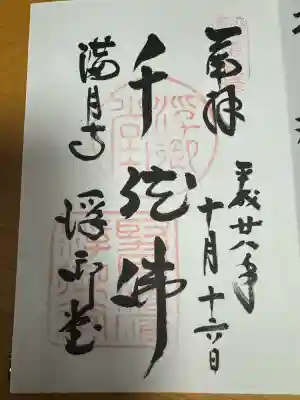 奉拝
平成廿八年
十月十六日
千体佛
満月寺
浮御堂